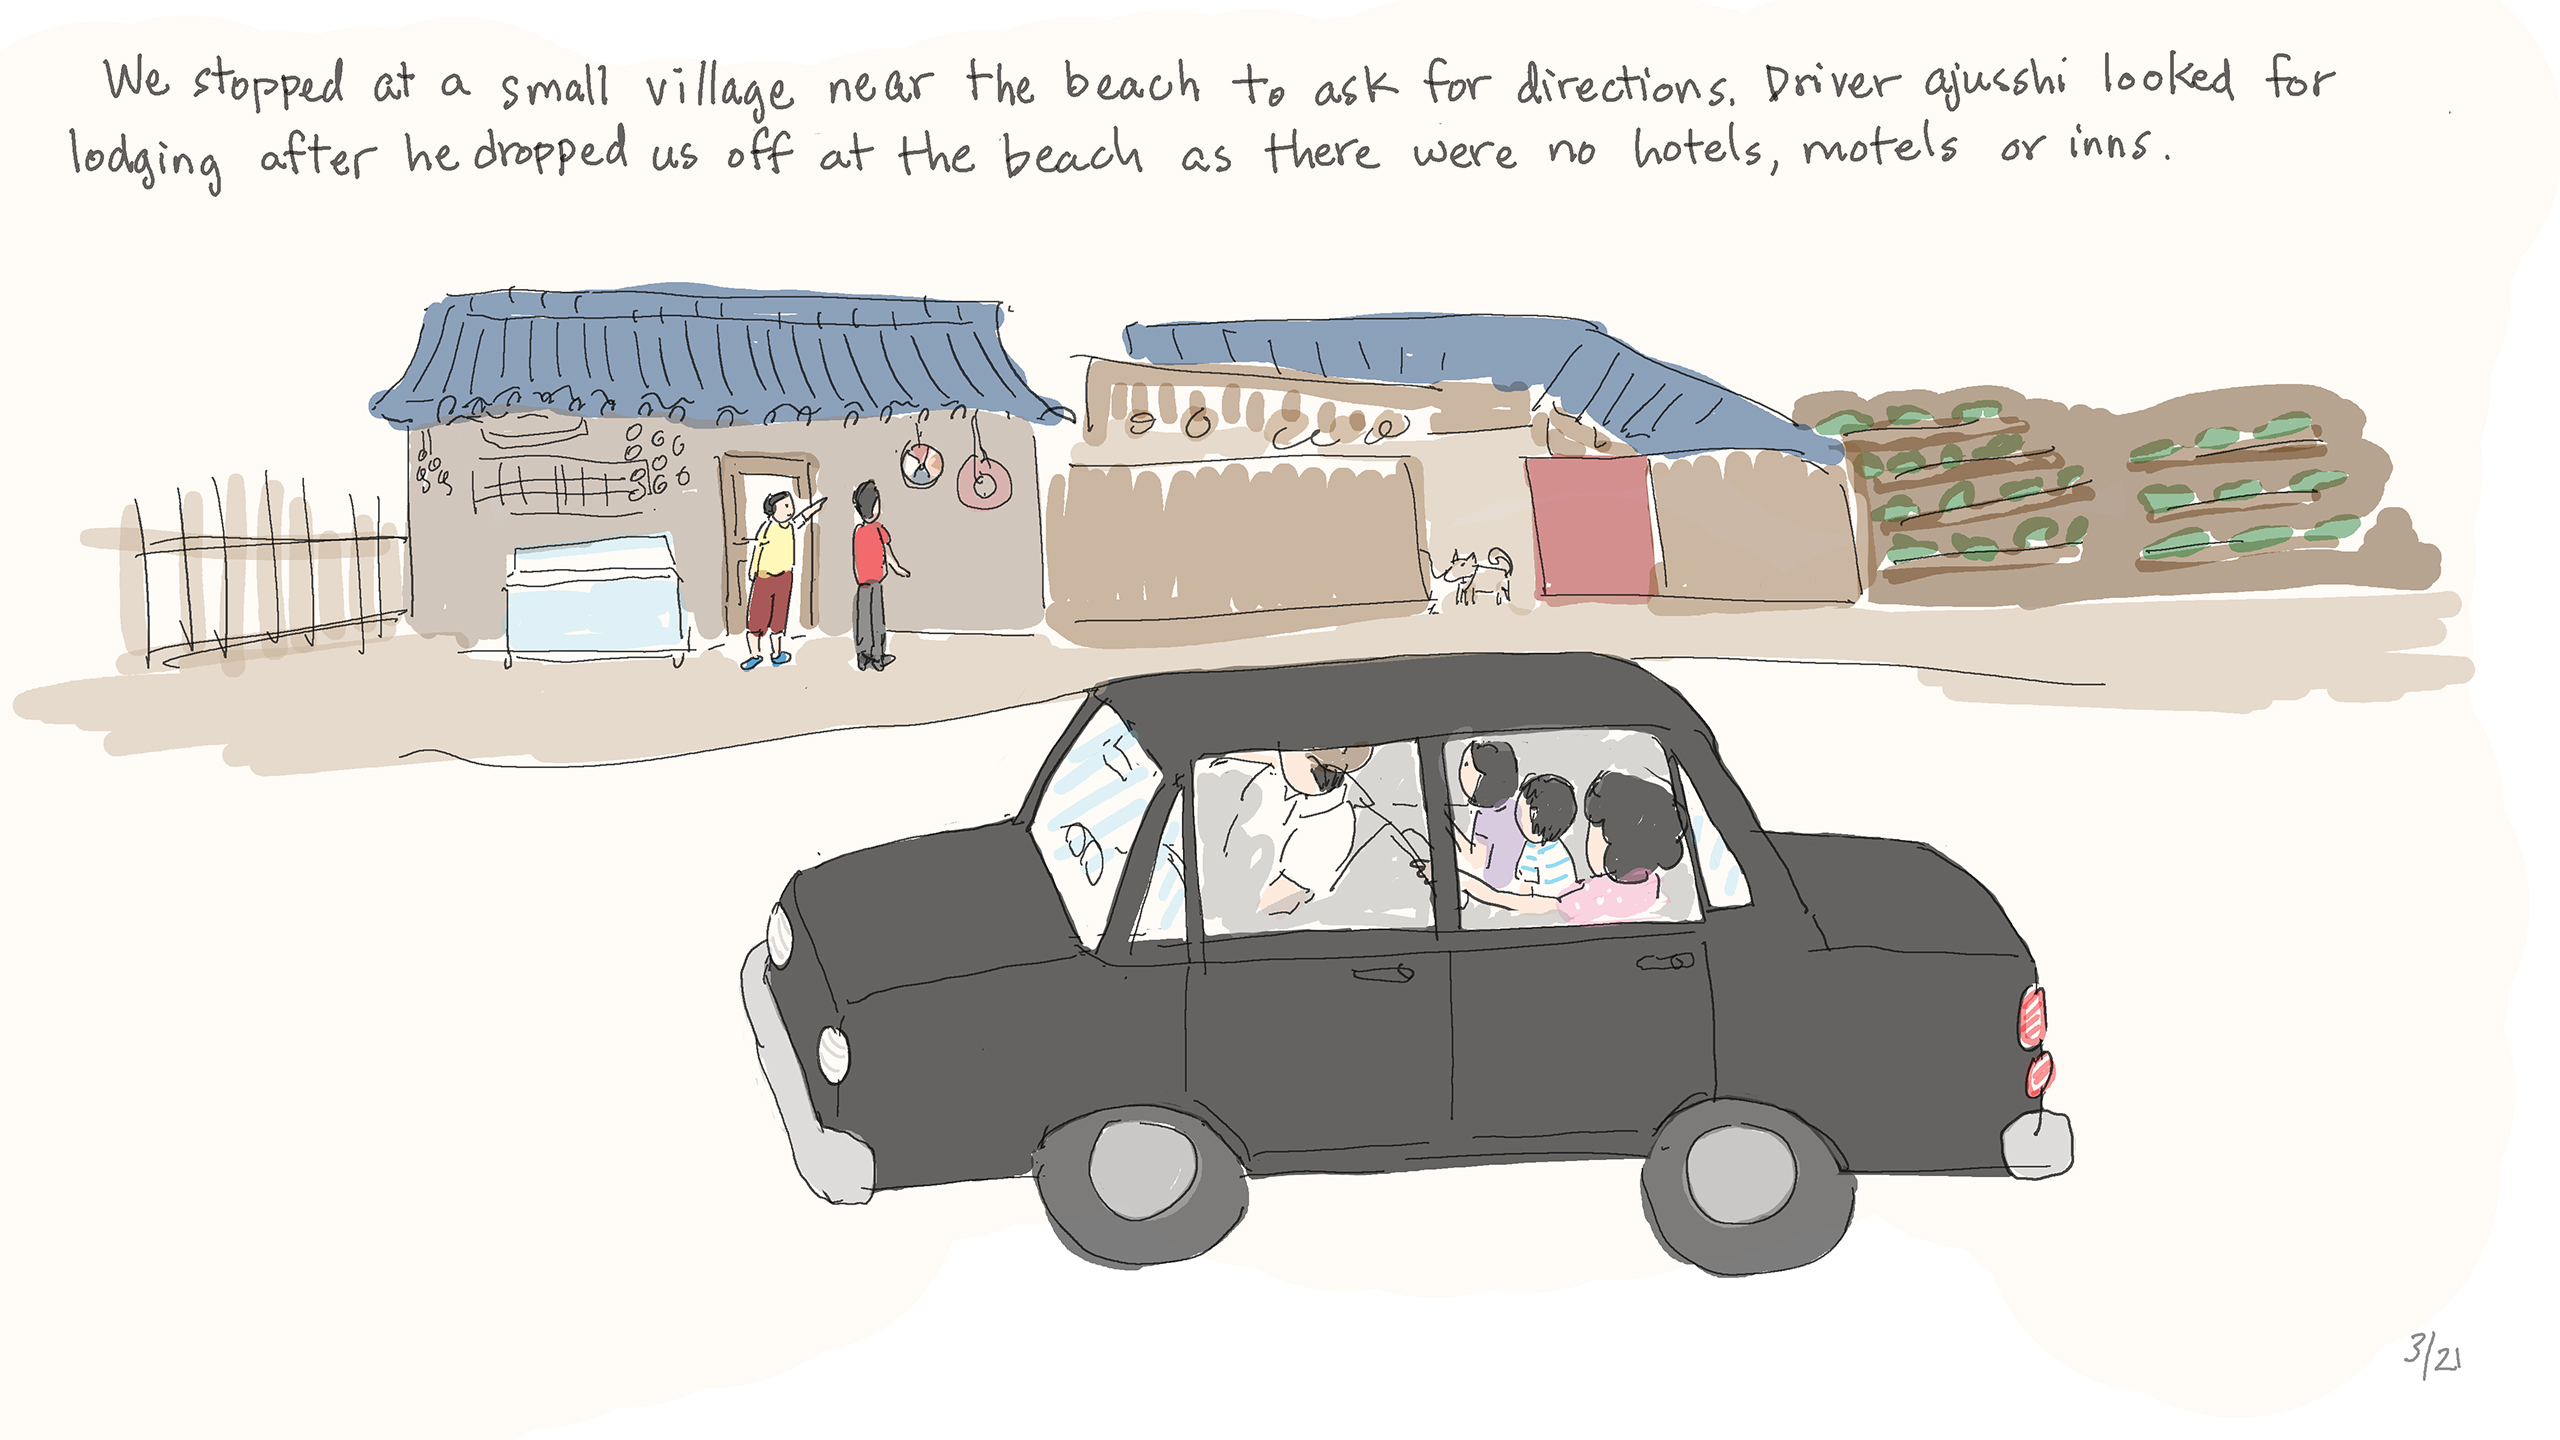 We stopped at a small village near the beach to ask for directions. Driver ajusshi looked for
lodging after he dropped us off at the beach as there were no hotels, motels or inns.
3/21